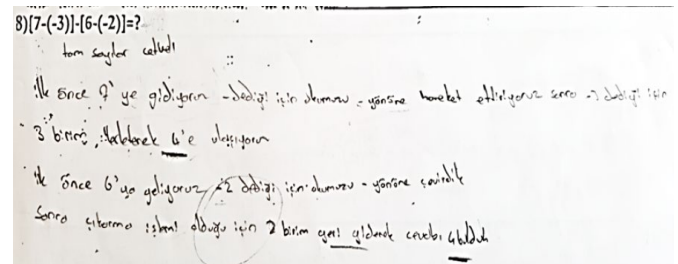 8)[7-(-3)]-[6-(-2)]=?
tam sayılar cetveli
ilk önce 7'ye gidiyorum -dediği için okumuzu - yönüne hareket ettiriyoruz sonra -3 dediği için
3 birim ilerleterek 4'e ulaşıyorum
ilk önce 6'ya geliyoruz -2 dediği için okumuzu - yönüne çevirdik
Sonra çıkarma işlemi olduğu için 2 birim geri giderek cevabı 4 bulduk